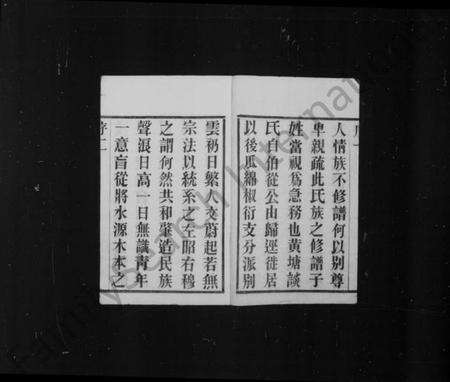 人情族不修譜何以别尊
卑親疏此氏族之修譜子
姓當視為急務也黄塘談
氏自伯從公由歸遷徙居
以後瓜綿椒衍支分派别
雲礽日繁人文蔚起若無
宗法以統系之左昭右穆
之謂何然共和肇造民族
聲漲日高一日無識靑年
一意盲從將水源木本之
序二